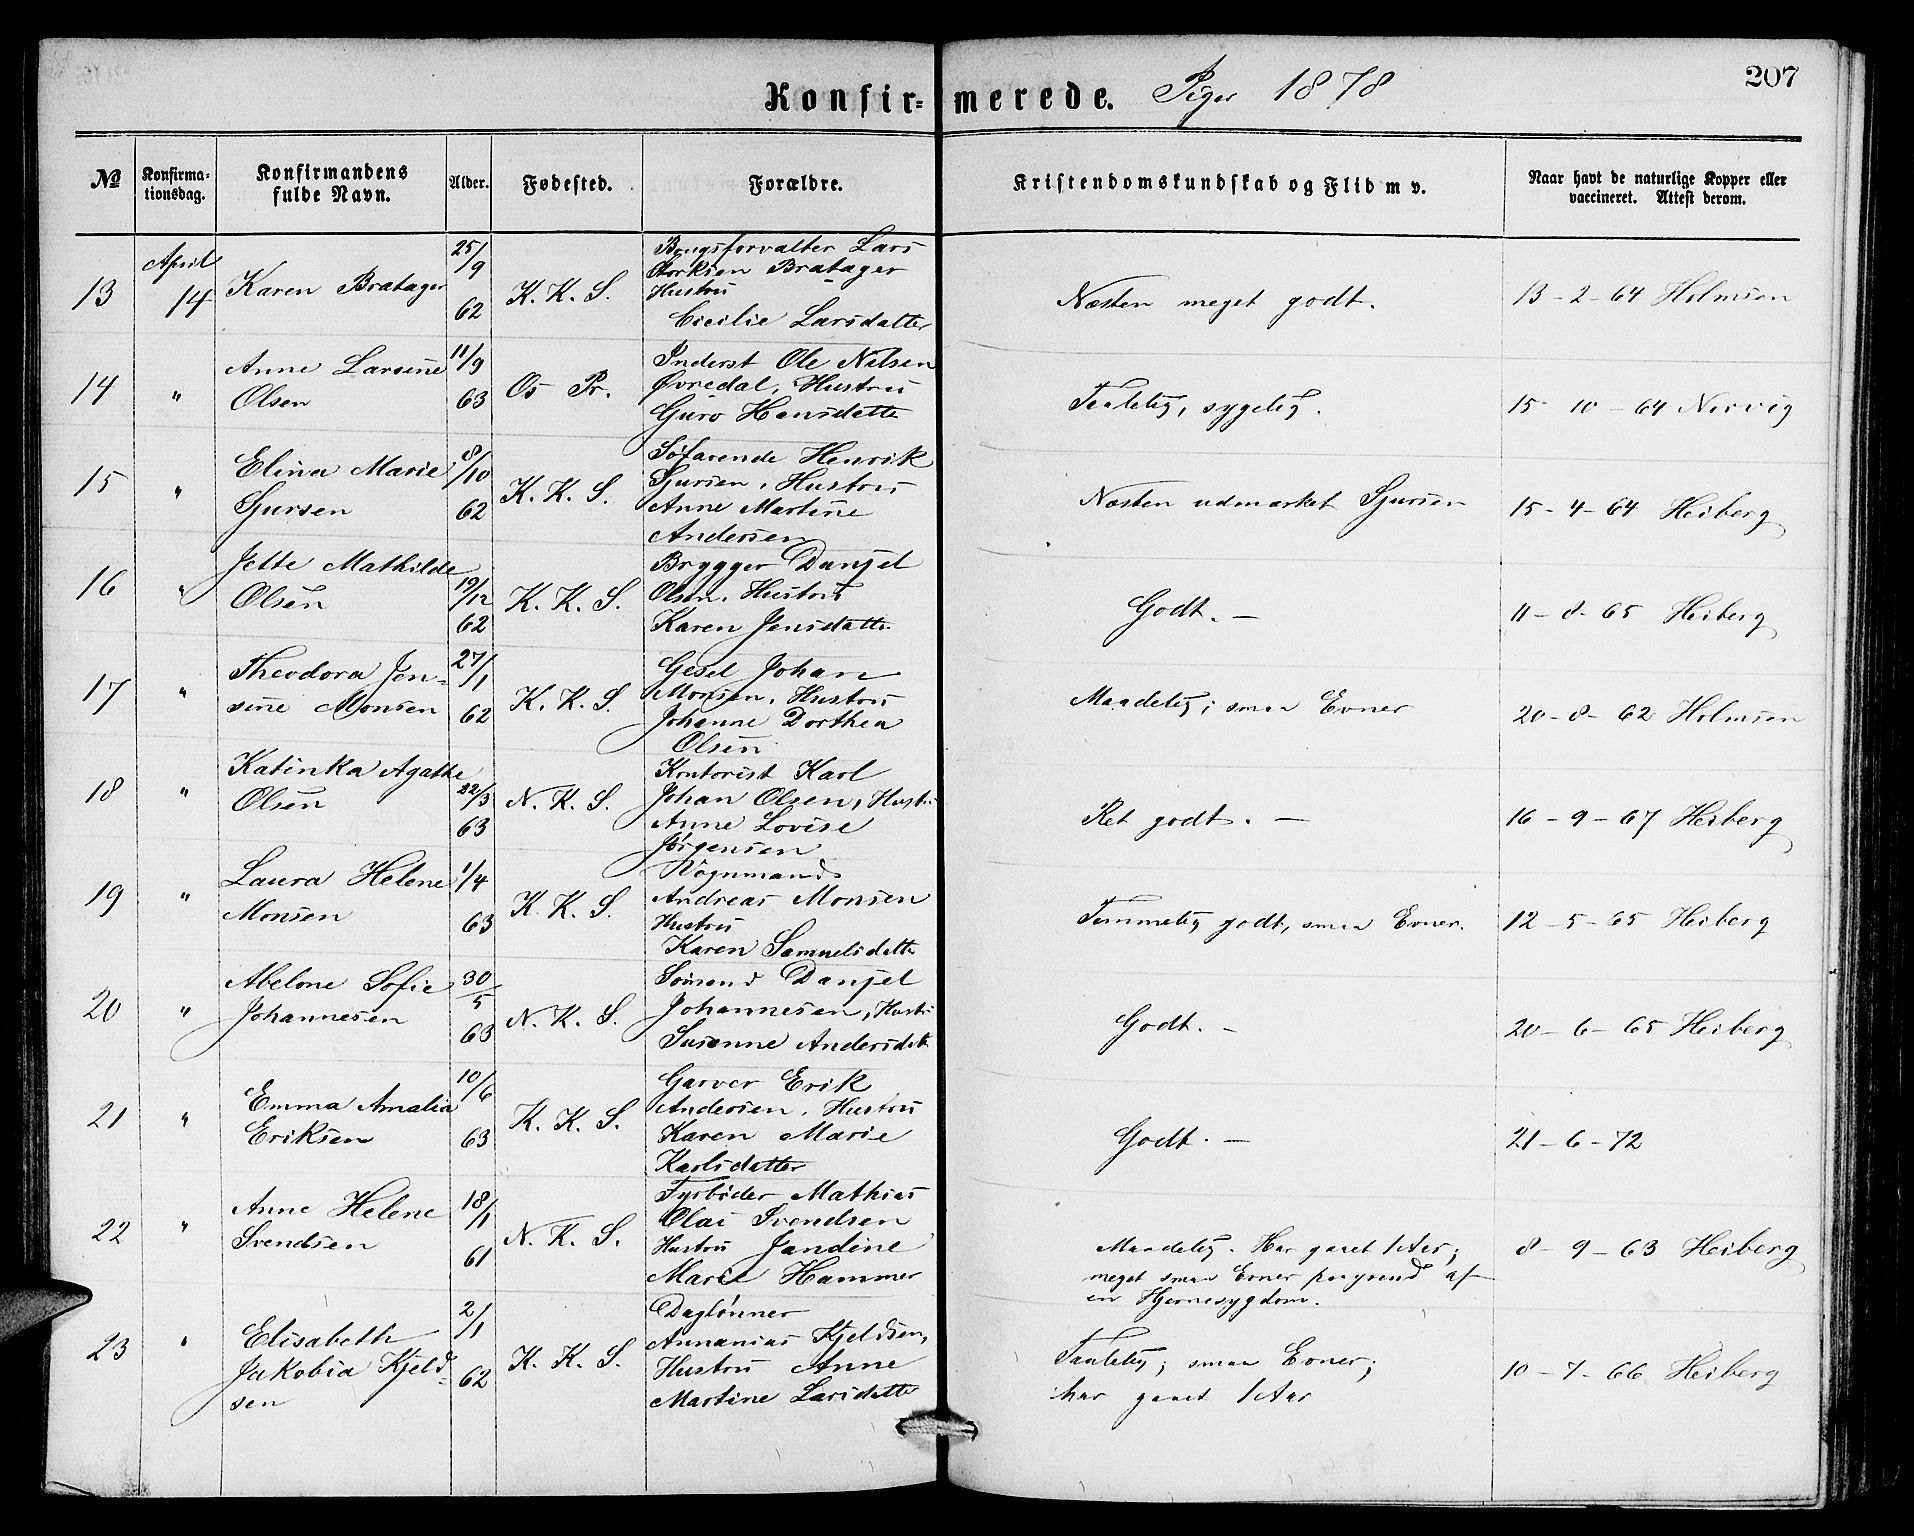 Konfirmerede. Piger 1878
207
№
Konfirmationsdag.
Konfirmandens fulde Navn.
Alder.
Fødested.
Forældre.
Kristendomskundskab og Flid m v.
Naar havt de naturlige Kopper eller vaccineret. Attest derom.
13 April 14 Karen Bratager 25/9 62 K. K. S.
Lars
Bratager
Hustru
Cicilie Larsdatter
Næsten meget godt.
13-2-64 Holmsen
14 " Anne Larsine Olsen 11/9 63 Os Pr.
Inderst Ole Nilsen
Øvredal, Hustru
Guro Hansdatte
Taalelig, sygelig.
15-10-64 Nervig
15 " Elina Marie Sjursen 8/10 62 K. K. S.
Søfarende Henrik
Sjursen, Hustru
Anne Martine
Andersen
Næsten udmærket Sjursen
15-4-64 Heiberg
16 " Jette Mathilde Olsen 19/12 62 K. K. S.
Brygger Danjel
Olsen, Hustru
Karen Jensdatte
Godt. —
11-8-65 Heiberg
17 " Theodora Jensine Monsen 27/1 62 K. K. S.
Gesel Johan
Monsen, Hustru
Johanne Dorthea
Olsen
Maadelig; smaa Evner
20-8-62 Holmsen
18 " Katinka Agathe Olsen 22/3 63 N. K. S.
Kontorist Karl
Johan Olsen, Hustru
Anne Lovise
Jørgensen
Ret godt. —
16-9-67 Heiberg
19 " Laura Helene Monsen 1/4 63 K. K. S.
Vognmand
Andreas Monsen
Hustru
Karen Samuelsdatte
Temmelig godt, smaa Evner.
12-5-65 Heiberg
20 " Abelone Sofie Johannesen 30/5 63 N. K. S.
Sømand Danjel
Johannesen, Hustr
Susanne Andersdat
Godt. —
20-6-65 Heiberg
21 " Emma Amalia Eriksen 10/6 63 K. K. S.
Garver Erik
Andersen, Hustru
Karen Marie
Karlsdatter
Godt. —
21-6-72
22 " Anne Helene Svendsen 18/1 61 N. K. S.
Fyrbøder Mathias
Olai Svendsen
Hustru Jandine
Marie Hammer
Maadelig. Har gaaet 1 Aar;
meget smaa Evner paagrund af
en Hjernesygdom.
8-9-63 Heiberg
23 " Elisabeth Jakobia Kjeldsen 2/1 62 K. K. S.
Daglønner
Annanias Kjeldsen,
Hustru Anne
Martine Larsdatte
Taalelig; smaa Evner;
har gaaet 1 Aar
10-7-66 Heiberg